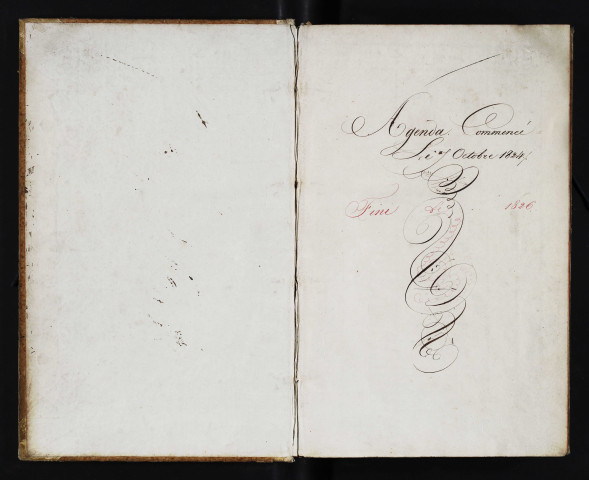 Agenda. Commencé
Le 1er Octobre 1824
Fini 1826